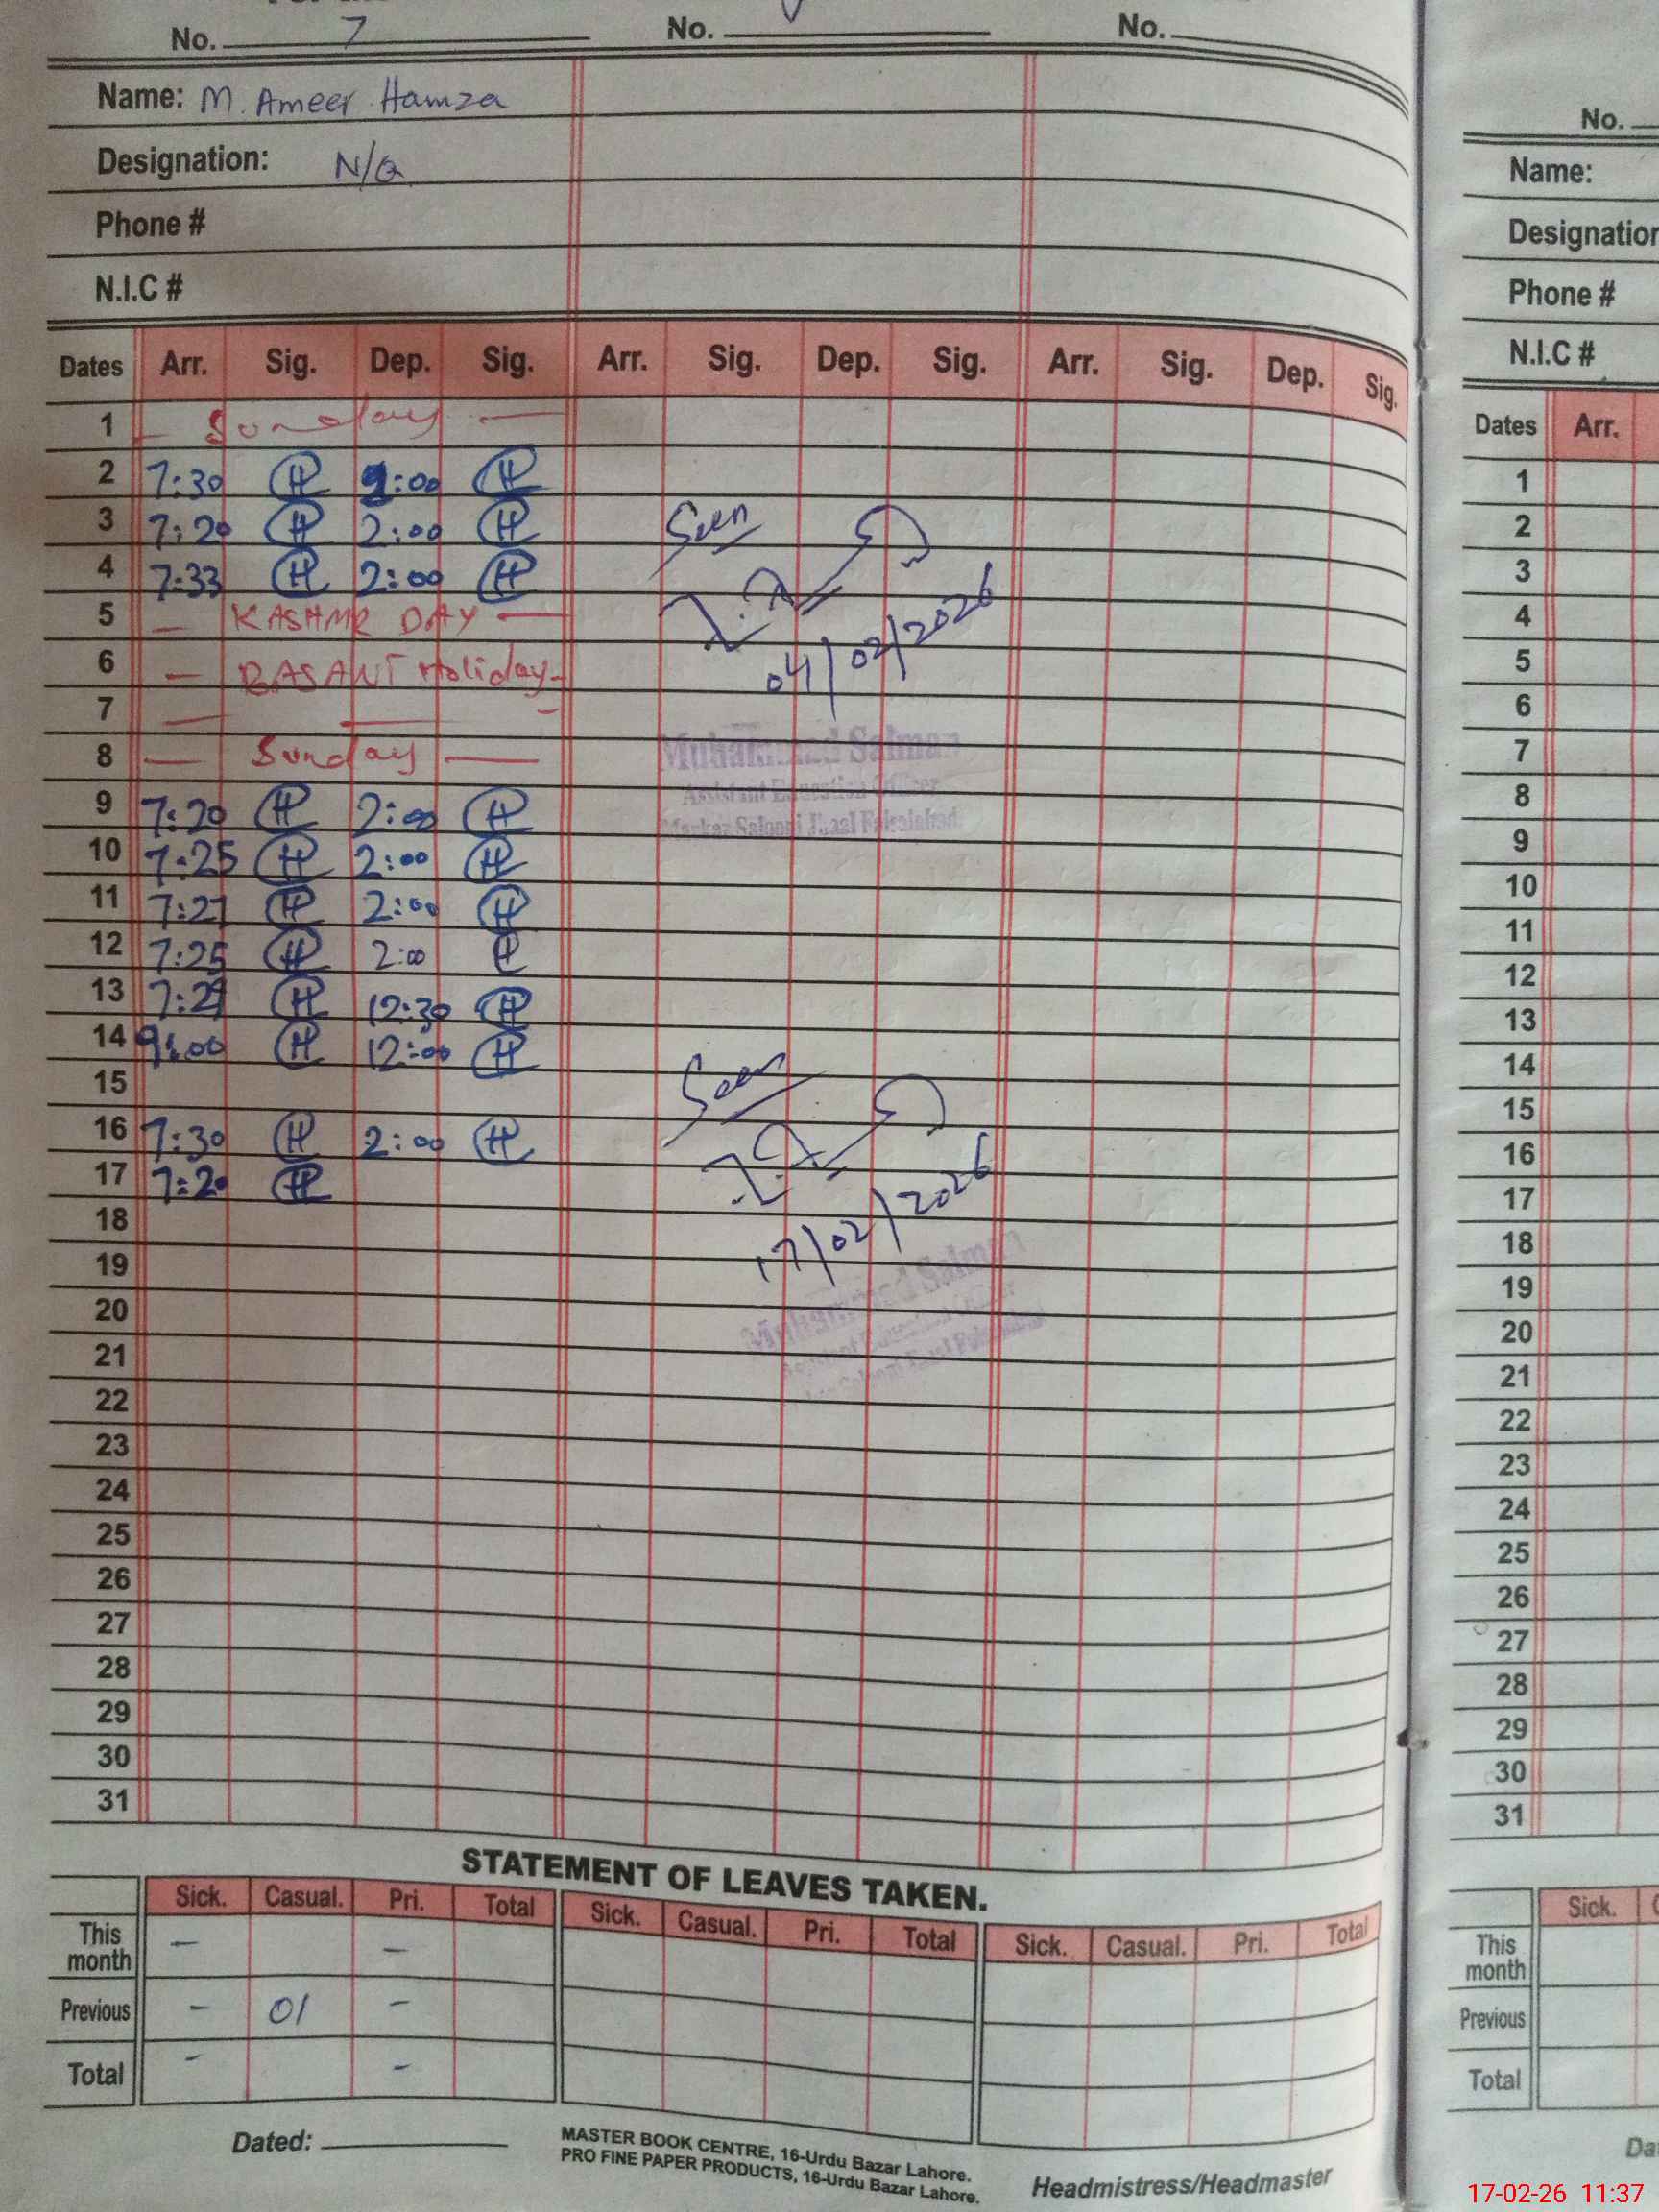 No. 7 No. No.
Name: M. Ameer Hamza
Designation: N/Q
Phone #
N.I.C #
Dates Arr. Sig. Dep. Sig. Arr. Sig. Dep. Sig. Arr. Sig. Dep. Sig.
1 — Sunday —
2 7:30 :00
3 7:20 2:00
4 7:33 2:00
5 — KASHMR DAY —
6 — BASANT Holiday -
7 — — -
8 — Sunday —
9 7:20 2:00
10 7:25 2:00
11 7:27 2:00
12 7:25 2:00
13 7:29 12:30
14 9:00 12:00
15
16 7:30 2:00
17 7:20
18
19
20
21
22
23
24
25
26
27
28
29
30
31
Seen
04/02/2026
Muhammad Salman
Assistant Education Officer
Markaz Salooni Jhaal Faisalabad
Seen
17/02/2026
Muhammad Salman
STATEMENT OF LEAVES TAKEN.
Sick. Casual. Pri. Total Sick. Casual. Pri. Total Sick. Casual. Pri. Total
This month — —
Previous - 01 -
Total - -
Dated:
MASTER BOOK CENTRE, 16-Urdu Bazar Lahore.
PRO FINE PAPER PRODUCTS, 16-Urdu Bazar Lahore.
Headmistress/Headmaster
No.
Name:
Designation
Phone #
N.I.C #
Dates Arr.
1
2
3
4
5
6
7
8
9
10
11
12
13
14
15
16
17
18
19
20
21
22
23
24
25
26
27
28
29
30
31
Sick.
This month
Previous
Total
17-02-26 11:37